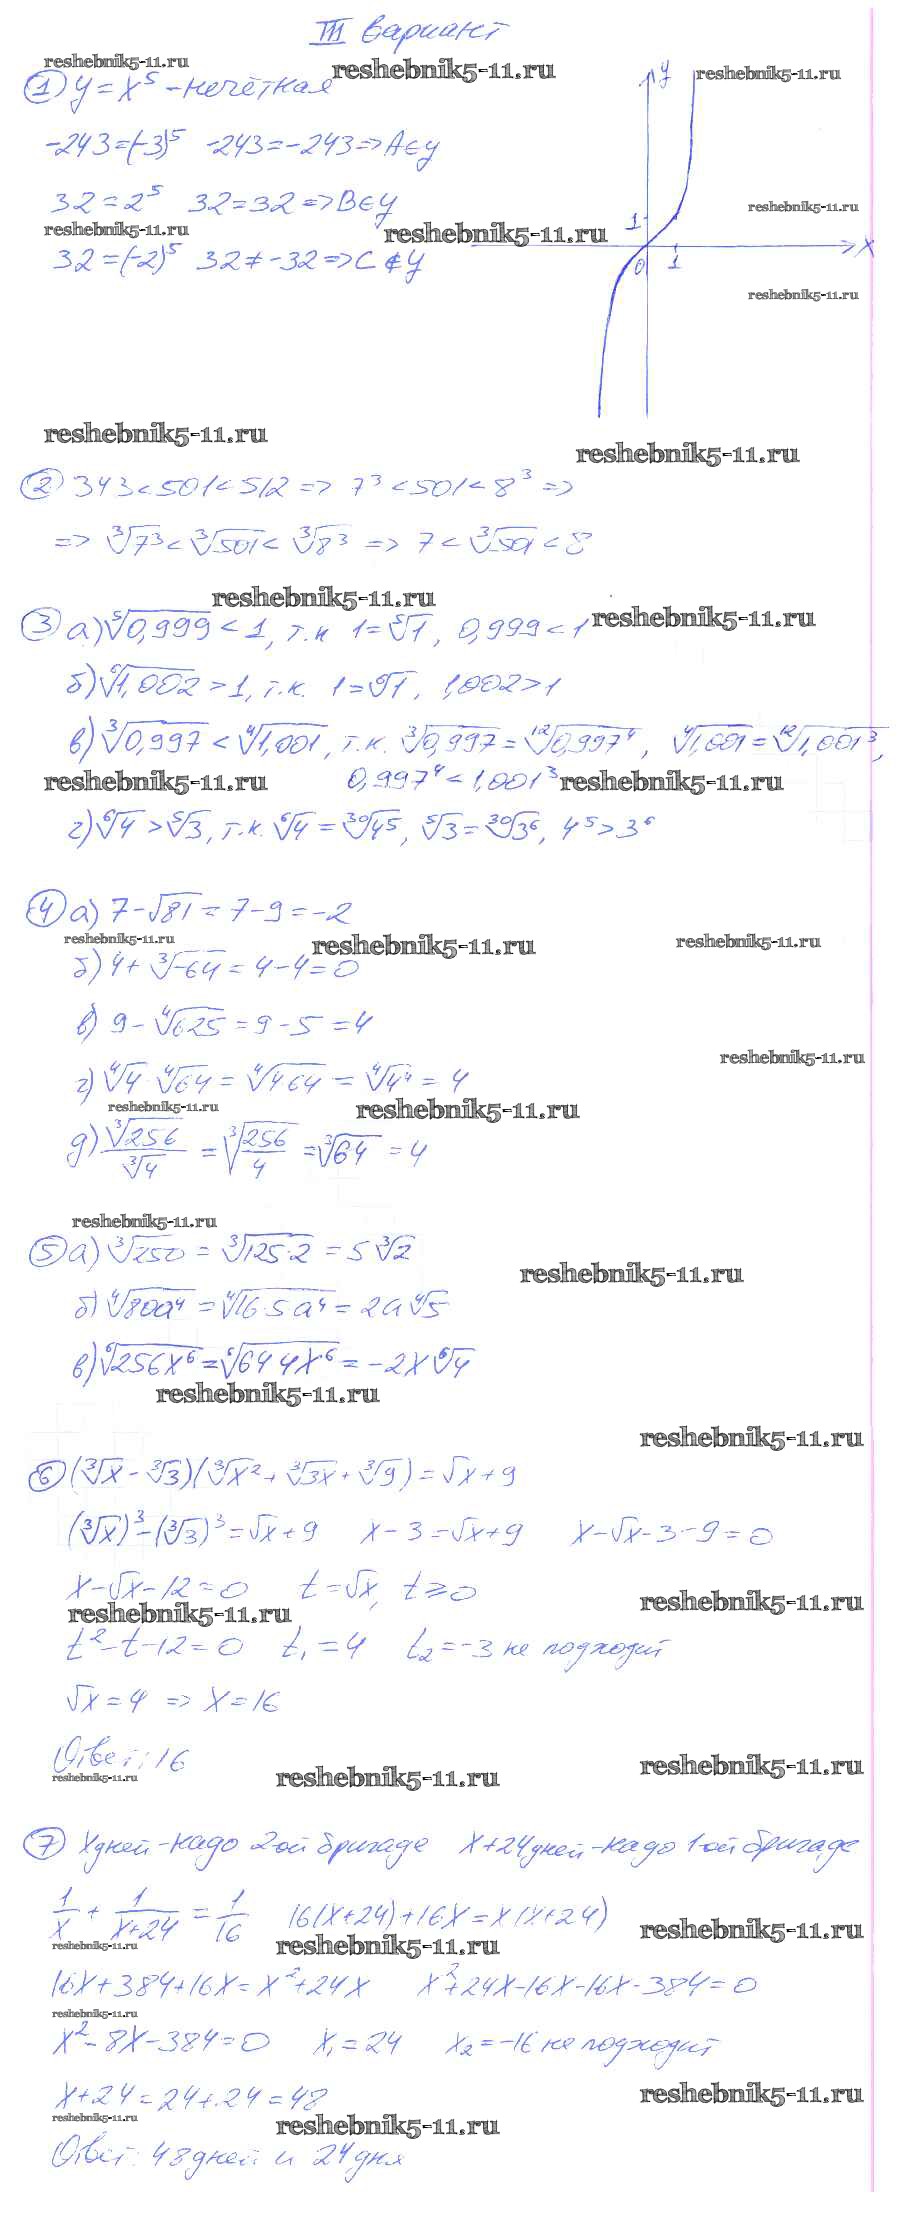 III вариант
reshebnik5-11.ru
reshebnik5-11.ru
reshebnik5-11.ru
① y = x⁵ - нечётная
-243=(-3)⁵ -243=-243=>A∈y
32=2⁵ 32=32=>B∈y
reshebnik5-11.ru
reshebnik5-11.ru
reshebnik5-11.ru
32=(-2)⁵ 32≠-32=>C∉y
y
1
0
1
x
reshebnik5-11.ru
reshebnik5-11.ru
reshebnik5-11.ru
② 343<501<512 => 7³<501<8³ =>
=> ∛7³ < ∛501 < ∛8³ => 7 < ∛501 < 8
reshebnik5-11.ru
③ а) ⁵√0,999 < 1, т.к 1=⁵√1, 0,999<1
reshebnik5-11.ru
б) ⁶√1,002 > 1, т.к. 1=⁶√1, 1,002>1
в) ³√0,997 < ⁴√1,001, т.к. ³√0,997 = ¹²√0,997⁴, ⁴√1,001 = ¹²√1,001³,
reshebnik5-11.ru
0,997⁴ < 1,001³
reshebnik5-11.ru
г) ⁶√4 > ⁵√3, т.к. ⁶√4 = ³⁰√4⁵, ⁵√3 = ³⁰√3⁶, 4⁵>3⁶
④ а) 7-√81 = 7-9=-2
reshebnik5-11.ru
reshebnik5-11.ru
reshebnik5-11.ru
б) 4+ ³√-64 = 4-4=0
в) 9- ⁴√625 = 9-5=4
reshebnik5-11.ru
г) ⁴√4 · ⁴√64 = ⁴√4 64 = ⁴√4⁴ = 4
reshebnik5-11.ru
reshebnik5-11.ru
д) ³√256/³√4 = ³√(256/4) = ³√64 = 4
reshebnik5-11.ru
⑤ а) ³√250 = ³√125·2 = 5 ³√2
reshebnik5-11.ru
б) ⁴√80a⁴ = ⁴√16·5a⁴ = 2a ⁴√5
в) ⁶√256x⁶ = ⁶√64 4x⁶ = -2x ⁶√4
reshebnik5-11.ru
reshebnik5-11.ru
⑥ (³√x - ³√3)(³√x² + ³√3x + ³√9) = √x+9
(³√x)³-(³√3)³ = √x+9 x-3=√x+9 x-√x-3-9=0
x-√x-12=0 t=√x, t≥0
reshebnik5-11.ru
reshebnik5-11.ru
t²-t-12=0 t₁=4 t₂=-3 не подходит
√x=4 => x=16
Ответ: 16
reshebnik5-11.ru
reshebnik5-11.ru
reshebnik5-11.ru
⑦ x дней - надо 2ой бригаде x+24 дней - надо 1ой бригаде
1/x + 1/(x+24) = 1/16 16(x+24)+16x=x(x+24)
reshebnik5-11.ru
reshebnik5-11.ru
reshebnik5-11.ru
16x+384+16x=x²+24x x²+24x-16x-16x-384=0
reshebnik5-11.ru
x²-8x-384=0 x₁=24 x₂=-16 не подходит
x+24=24+24=48
reshebnik5-11.ru
reshebnik5-11.ru
reshebnik5-11.ru
Ответ: 48 дней и 24 дня